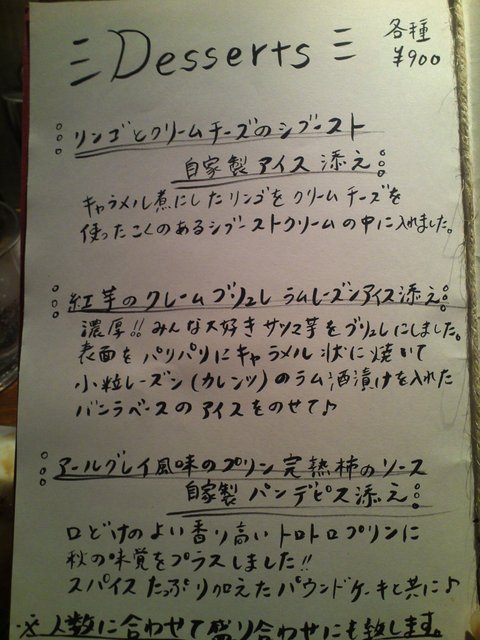 Desserts
各種
¥900
リンゴとクリームチーズのシブースト
自家製アイス添え
キャラメル煮にしたリンゴをクリームチーズを
使ったこくのあるシブーストクリームの中に入れました。
紅芋のクレームブリュレ ラムレーズンアイス添え
濃厚!! みんな大好きサツマ芋をブリュレにしました。
表面をパリパリにキャラメル状に焼いて
小粒レーズン(カレンツ)のラム酒漬けを入れた
バニラベースのアイスをのせて♪
アールグレイ風味のプリン 完熟柿のソース
自家製 パンデピス添え
口どけのよい香り高いトロトロプリンに
秋の味覚をプラスしました!!
スパイスたっぷり加えたパウンドケーキと共に♪
※人数に合わせて盛り合わせにも致します。